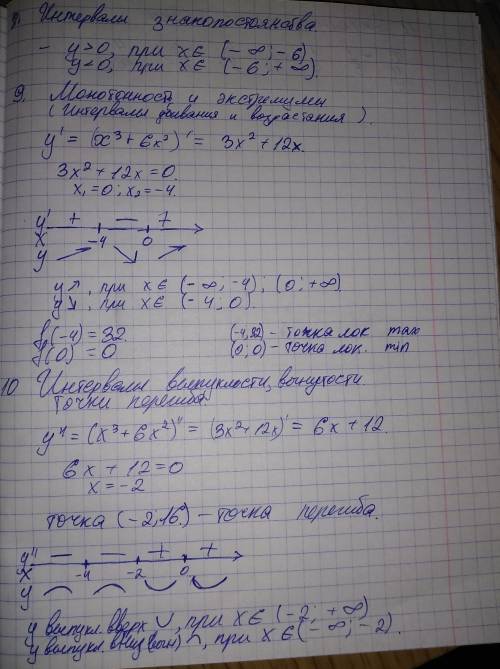 8. Интервалы знакопостоянства.
- y>0, при x∈ (-∞; -6)
y<0, при x∈ (-6; +∞).
9. Монотонность и экстремумы
(Интервалы убывания и возрастания).
y' = (x³+6x²)' = 3x²+12x.
3x²+12x=0.
x₁=0; x₂=-4.
y' + — +
x -4 0
y ↗ ↘ ↗
y↗, при x∈ (-∞; -4); (0; +∞)
y↘, при x∈ (-4; 0).
f(-4) = 32 (-4; 32) - точка лок max
f(0) = 0 (0; 0) - точка лок. min
10 Интервалы выпуклости, вогнутости.
Точки перегиба
y'' = (x³+6x²)'' = (3x²+12x)' = 6x+12.
6x+12=0
x=-2
точка (-2; 16) - точка перегиба.
y'' — — + +
x -4 -2 0
y ⌢ ⌢ ⌣ ⌣
y выпукл. вверх ∪, при x∈ (-2; +∞)
y выпукл. вниз (вогн) ∩, при x∈ (-∞; -2).